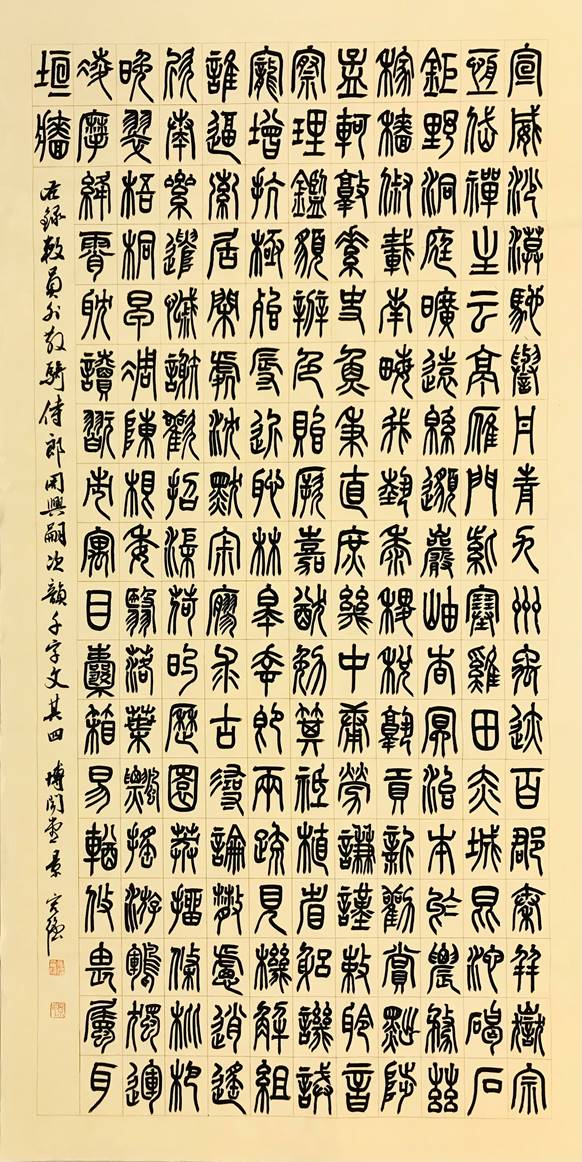 宣威沙漠馳譽丹青九州禹跡百郡秦并嶽宗
恆岱禪主云亭雁門紫塞雞田赤城昆池碣石
鉅野洞庭曠遠綿邈巖岫杳冥治本於農務茲
稼穡俶載南畝我藝黍稷稅熟貢新勸賞黜陟
孟軻敦素史魚秉直庶幾中庸勞謙謹敕聆音
察理鑑貌辨色貽厥嘉猷勉其祗植省躬譏誡
寵增抗極殆辱近恥林皋幸即兩疏見機解組
誰逼索居閒處沈默寂寥求古尋論散慮逍遙
欣奏累遣慼謝歡招渠荷的歷園莽抽條枇杷
晚翠梧桐早凋陳根委翳落葉飄颻游鵾獨運
凌摩絳霄耽讀翫市寓目囊箱易輶攸畏屬耳
垣牆
右錄敕員外散騎侍郎周興嗣次韻千字文其四 博聞